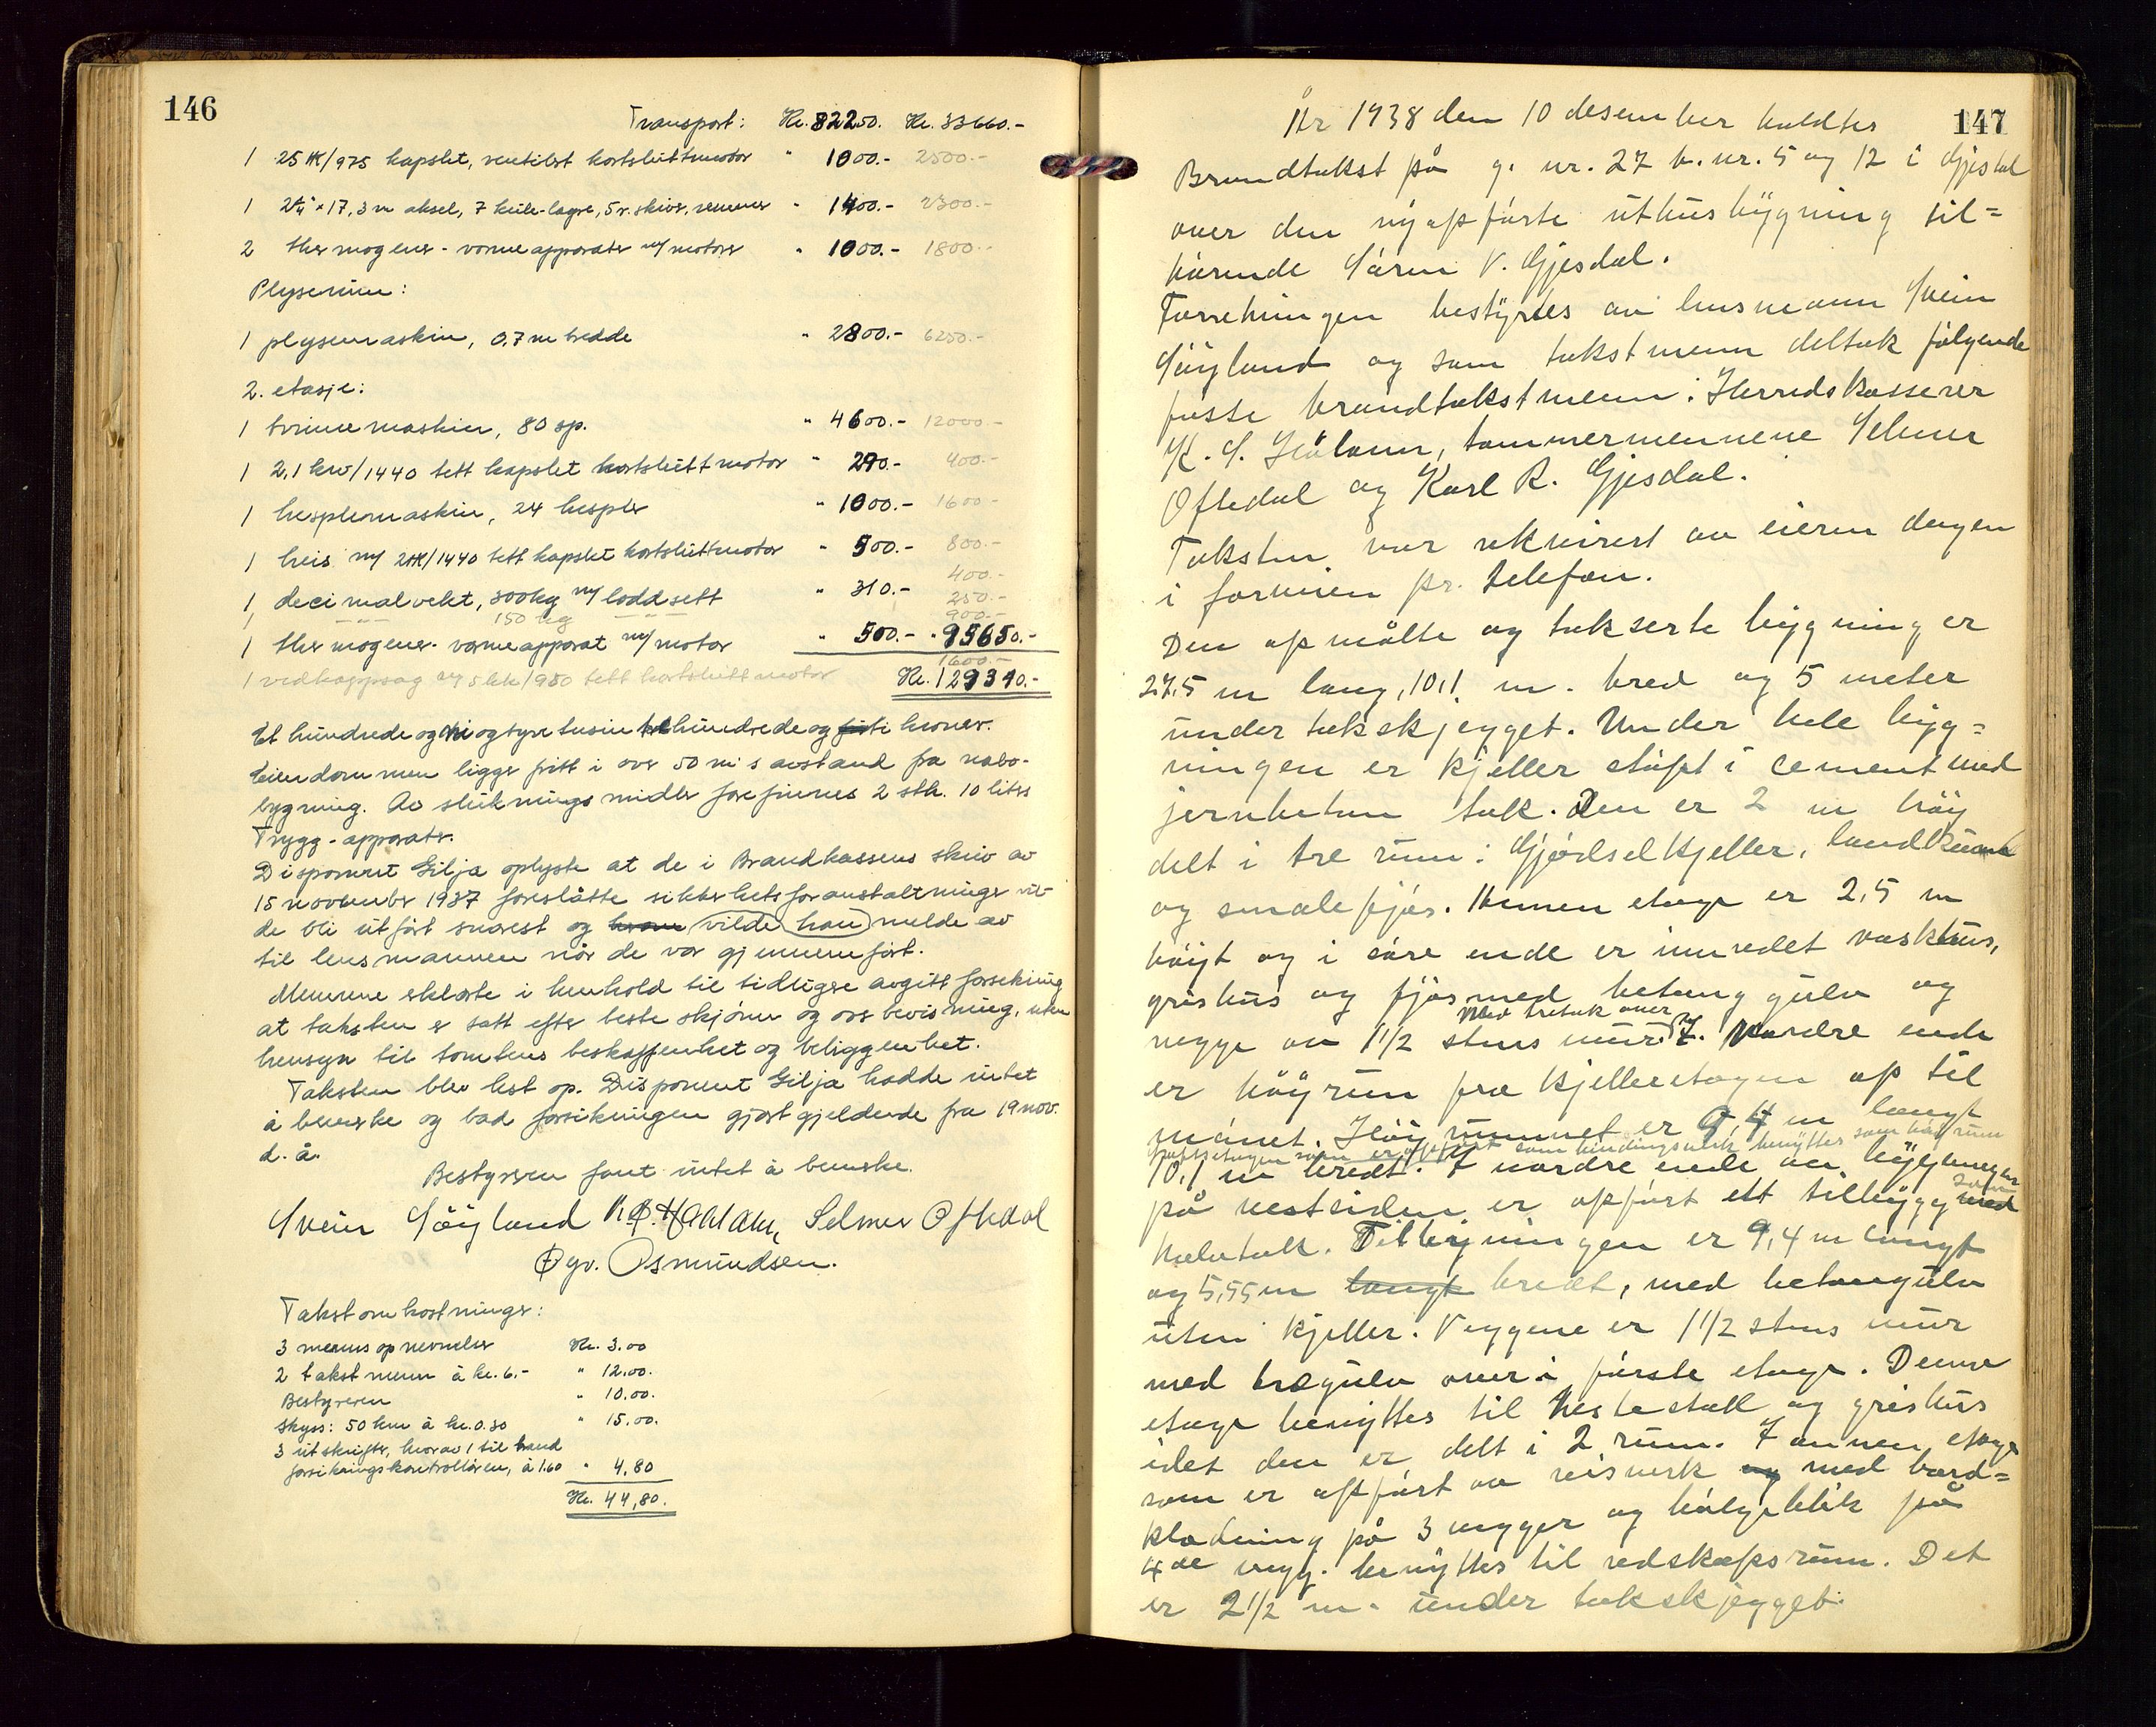 146
Transport: Kr. 82250. Kr. 33660.-
1 25 HK/975 kapslet, ventilert kortsluttmotor " 1000.- 2500.-
1 2¼" × 17,3 m aksel, 7 kule-lagre, 5 r. skiver, remmer " 1400.- 2300.-
2 thermogener-varmeapparater m/motorer " 1000.- 1800.-
Plyserum:
1 plysemaskin, 0,7 m bredde " 2800.- 6250.-
2. etasje:
1 tvinnemaskin, 80 sp. " 4600.- 12000.-
1 2,1 kw/1440 tett kapslet kortsluttmotor " 290.- 400.-
1 hesplemaskin, 24 hespler " 1000.- 1600.-
1 heis m/ 2HK/1440 tett kapslet kortsluttmotor " 500.- 800.-
400.-
1 decimalvekt, 300kg m/loddsett " 310.- 250.-
1 -"- 150 kg 900.-
1 thermogener-varmeapparat m/motor " 500.- " 95650.-
1600.-
1 vedkappsag m/5 hk/950 tett kortsluttmotor Kr. 129310.-
Et hundrede og ni og tyve tusin trehundrede og ti kroner.
Eiendommen ligger fritt i over 50 m's avstand fra nabo-
bygning. Av slukningsmidler forefinnes 2 stk. 10 liters
Trygg-apparater.
Disponent Gilja oplyste at de i Brandkassens skriv av
15 november 1937 foreslåtte sikkerhetsforanstaltninger vil-
de bli utført snarest og vilde han melde av
til lensmannen når de var gjennemført.
Mennene erklærte i henhold til tidligere avgitt forsikring
at taksten er satt efter beste skjønn og overbevisning, uten
hensyn til tomtens beskaffenhet og beliggenhet.
Taksten blev lest op. Disponent Gilja hadde intet
å bemerke og bad forsikringen gjort gjeldende fra 19 nov.
d. å.
Bestyreren fant intet å bemerke.
Svein Søyland K.S. Haaland, Selmer Oftedal
Ogv. Osmundsen.
Takstomkostninger:
3 menns opnevnelse Kr. 3.00
2 takstmenn à kr. 6.- " 12.00.
Bestyreren " 10.00.
Skyss: 50 km à kr. 0.30 " 15.00.
3 utskrifter, hvorav 1 til brand
forsikringskontrolløren, à 1.60 " 4,80
Kr. 44,80.
147
År 1938 den 10 desember holdtes
Brandtakst på g. nr. 27 b. nr. 5 og 12 i Gjestal
over den nyopførte uthusbygning til=
hørende Søren V. Gjesdal.
Forretningen bestyrtes av lensmann Svein
Søyland og som takstmenn deltok følgende
faste brandtakstmenn: Herredskasserer
K. S. Håland, tømmermennene Selmer
Oftedal og Karl R. Gjesdal.
Taksten var rekvirert av eieren dagen
i forveien pr. telefon.
Den opmålte og takserte bygning er
27,5 m lang, 10,1 m. bred og 5 meter
under takskjegget. Under hele byg=
ningen er kjeller støpt i cement med
jernbeton tak. Den er 2 m høy
delt i tre rum: Gjødselkjeller, landkum
og smalefjøs. Annen etage er 2,5 m
høyt og i søre ende er innredet vaskhus,
grishus og fjøs med betong gulv og
med tretak over
vegge av 1½ stens mur. I nordre ende
er høyrum fra kjelleretagen op til
mønet. Høyrummet er 9,4 m langt
loftsetagen som er opført som bindingsverk benyttes som høyrum
10,1 m bredt. I nordre ende av bygningen
på vestsiden er opført ett tilbygg med
halvtak. Tilbygningen er 9,4 m langt
og 5,55 m langt bredt, med betongulv
uten kjeller. Veggene er 1½ stens mur
med tregulv over i første etage. Denne
etage benyttes til hestestall og grishus
idet den er delt i 2 rum. I annen etage
som er opført av reisverk og med bord=
kledning på 3 vegger og bølgeblikk på
4de vegg. benyttes til redskapsrum. Det
er 2½ m. under takskjegget.